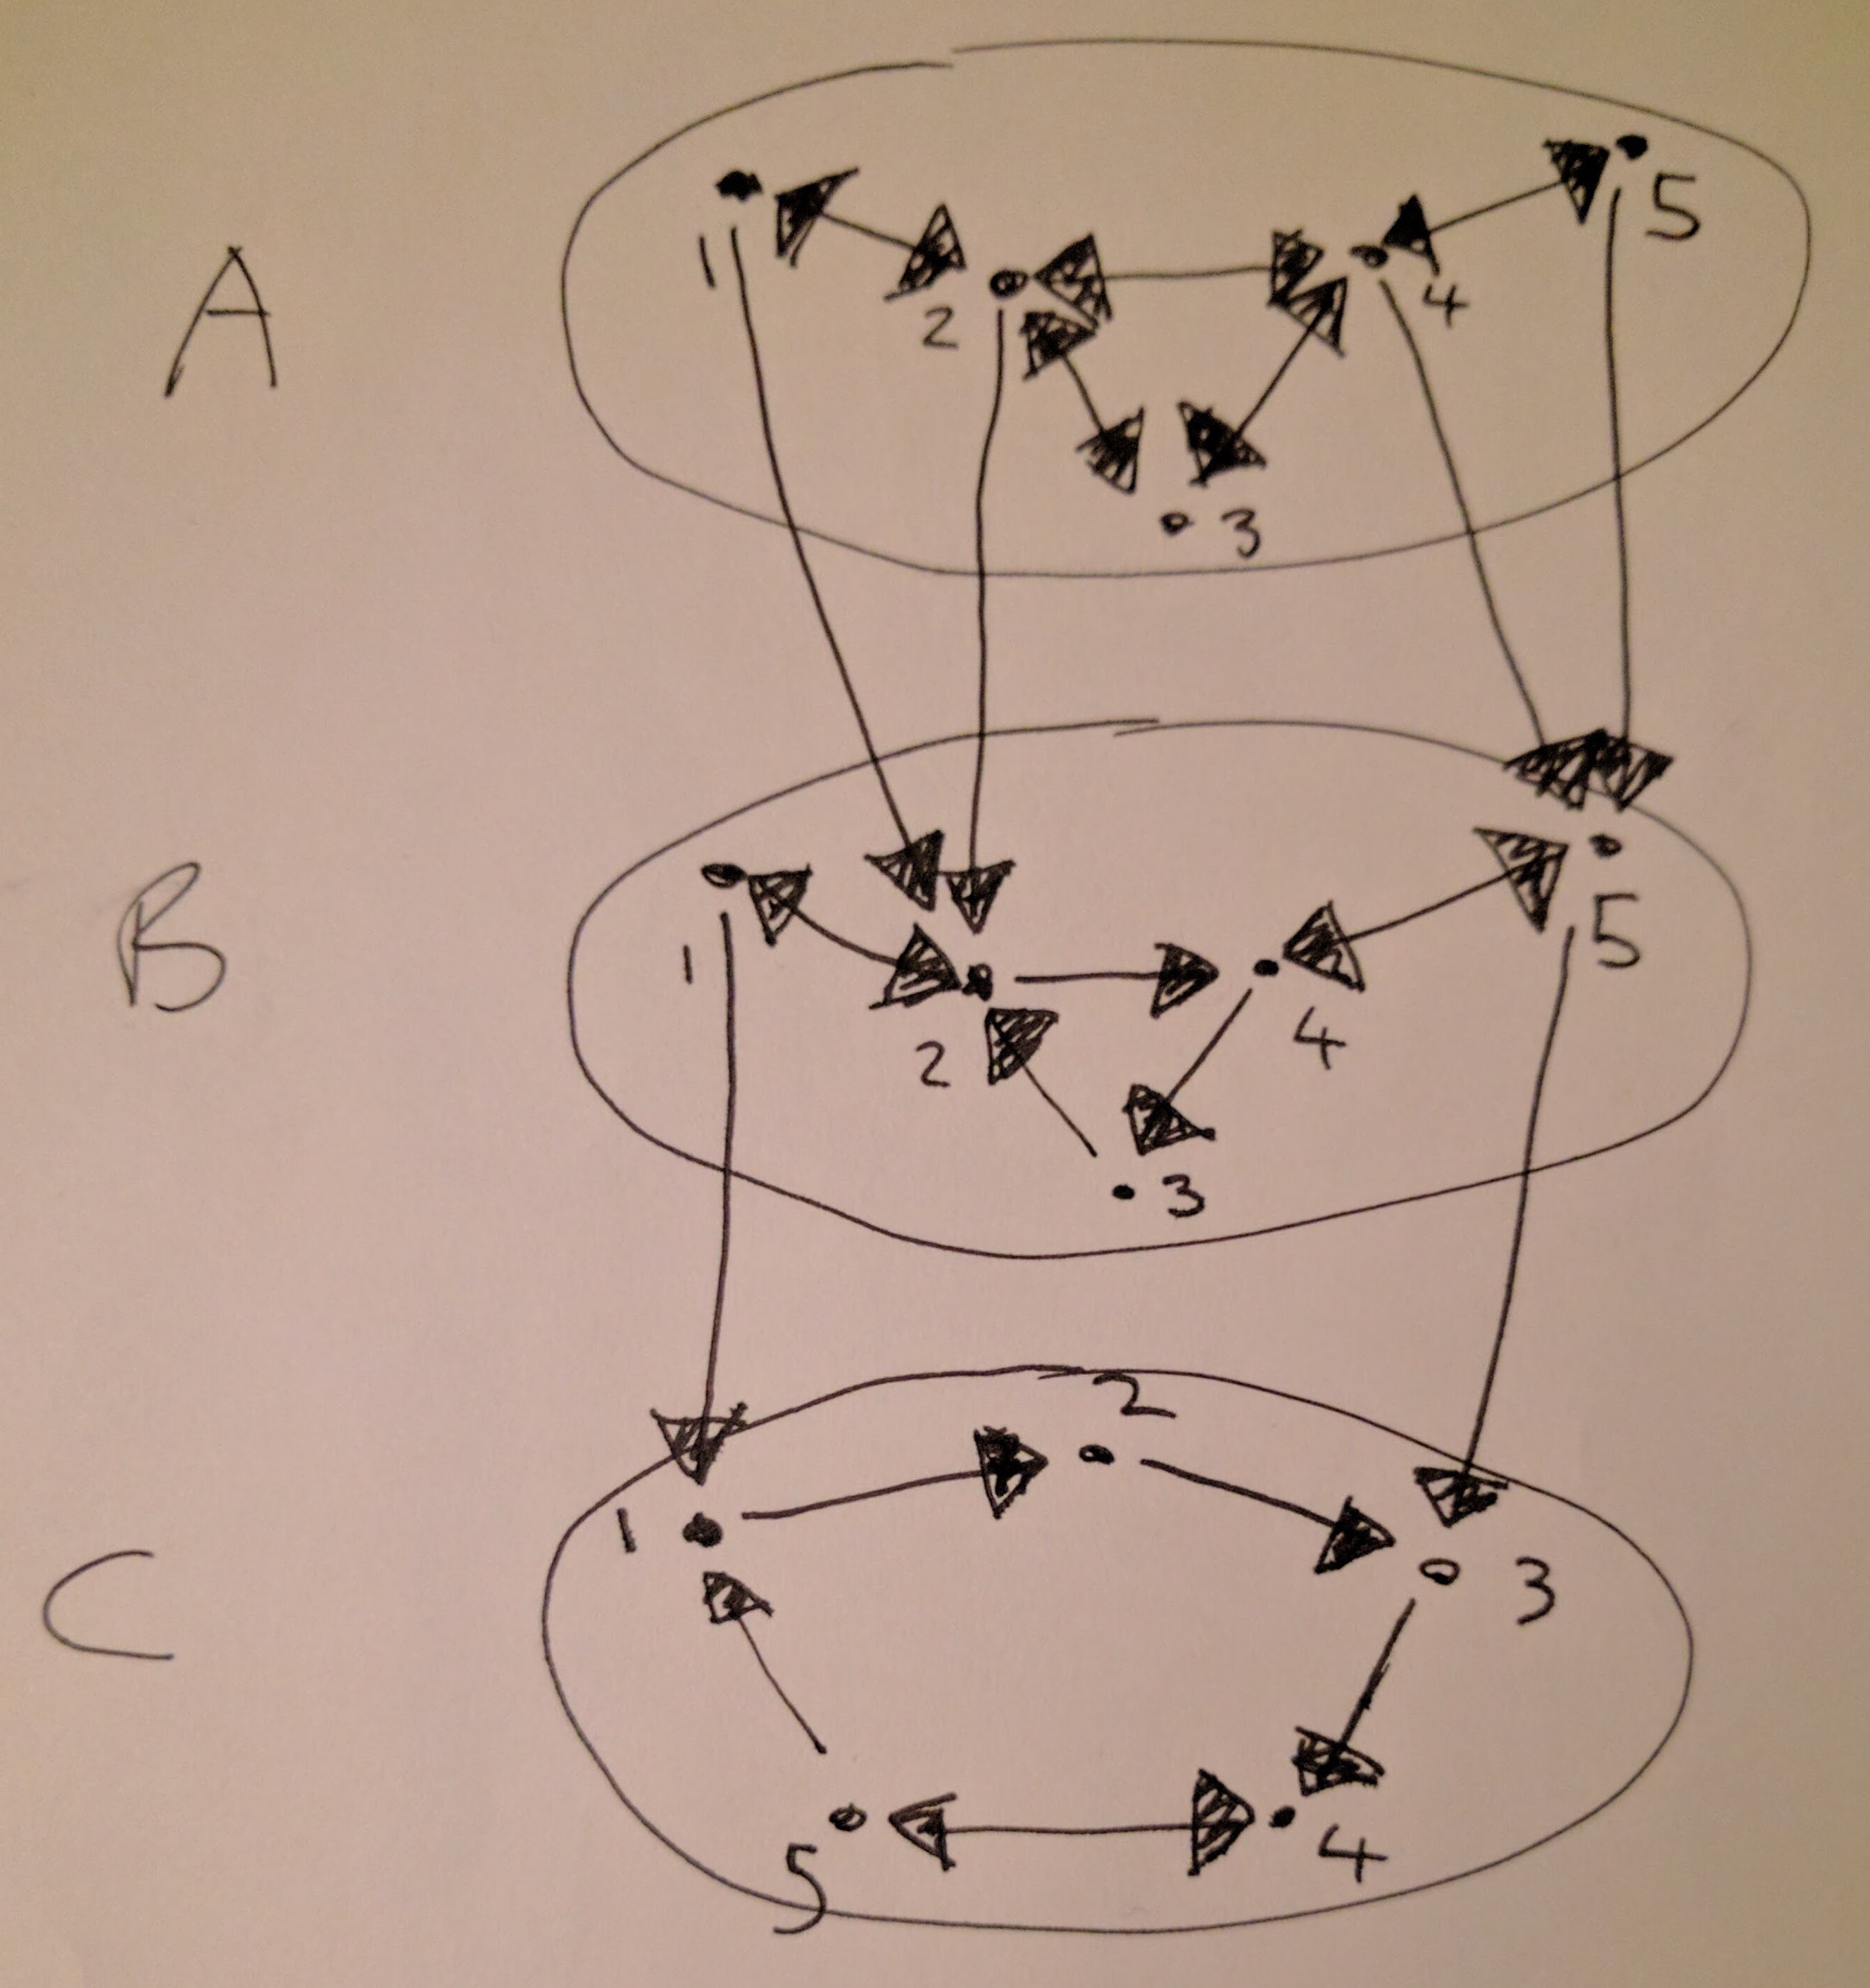 A
1
2
3
4
5
B
1
2
3
4
5
C
1
2
3
4
5